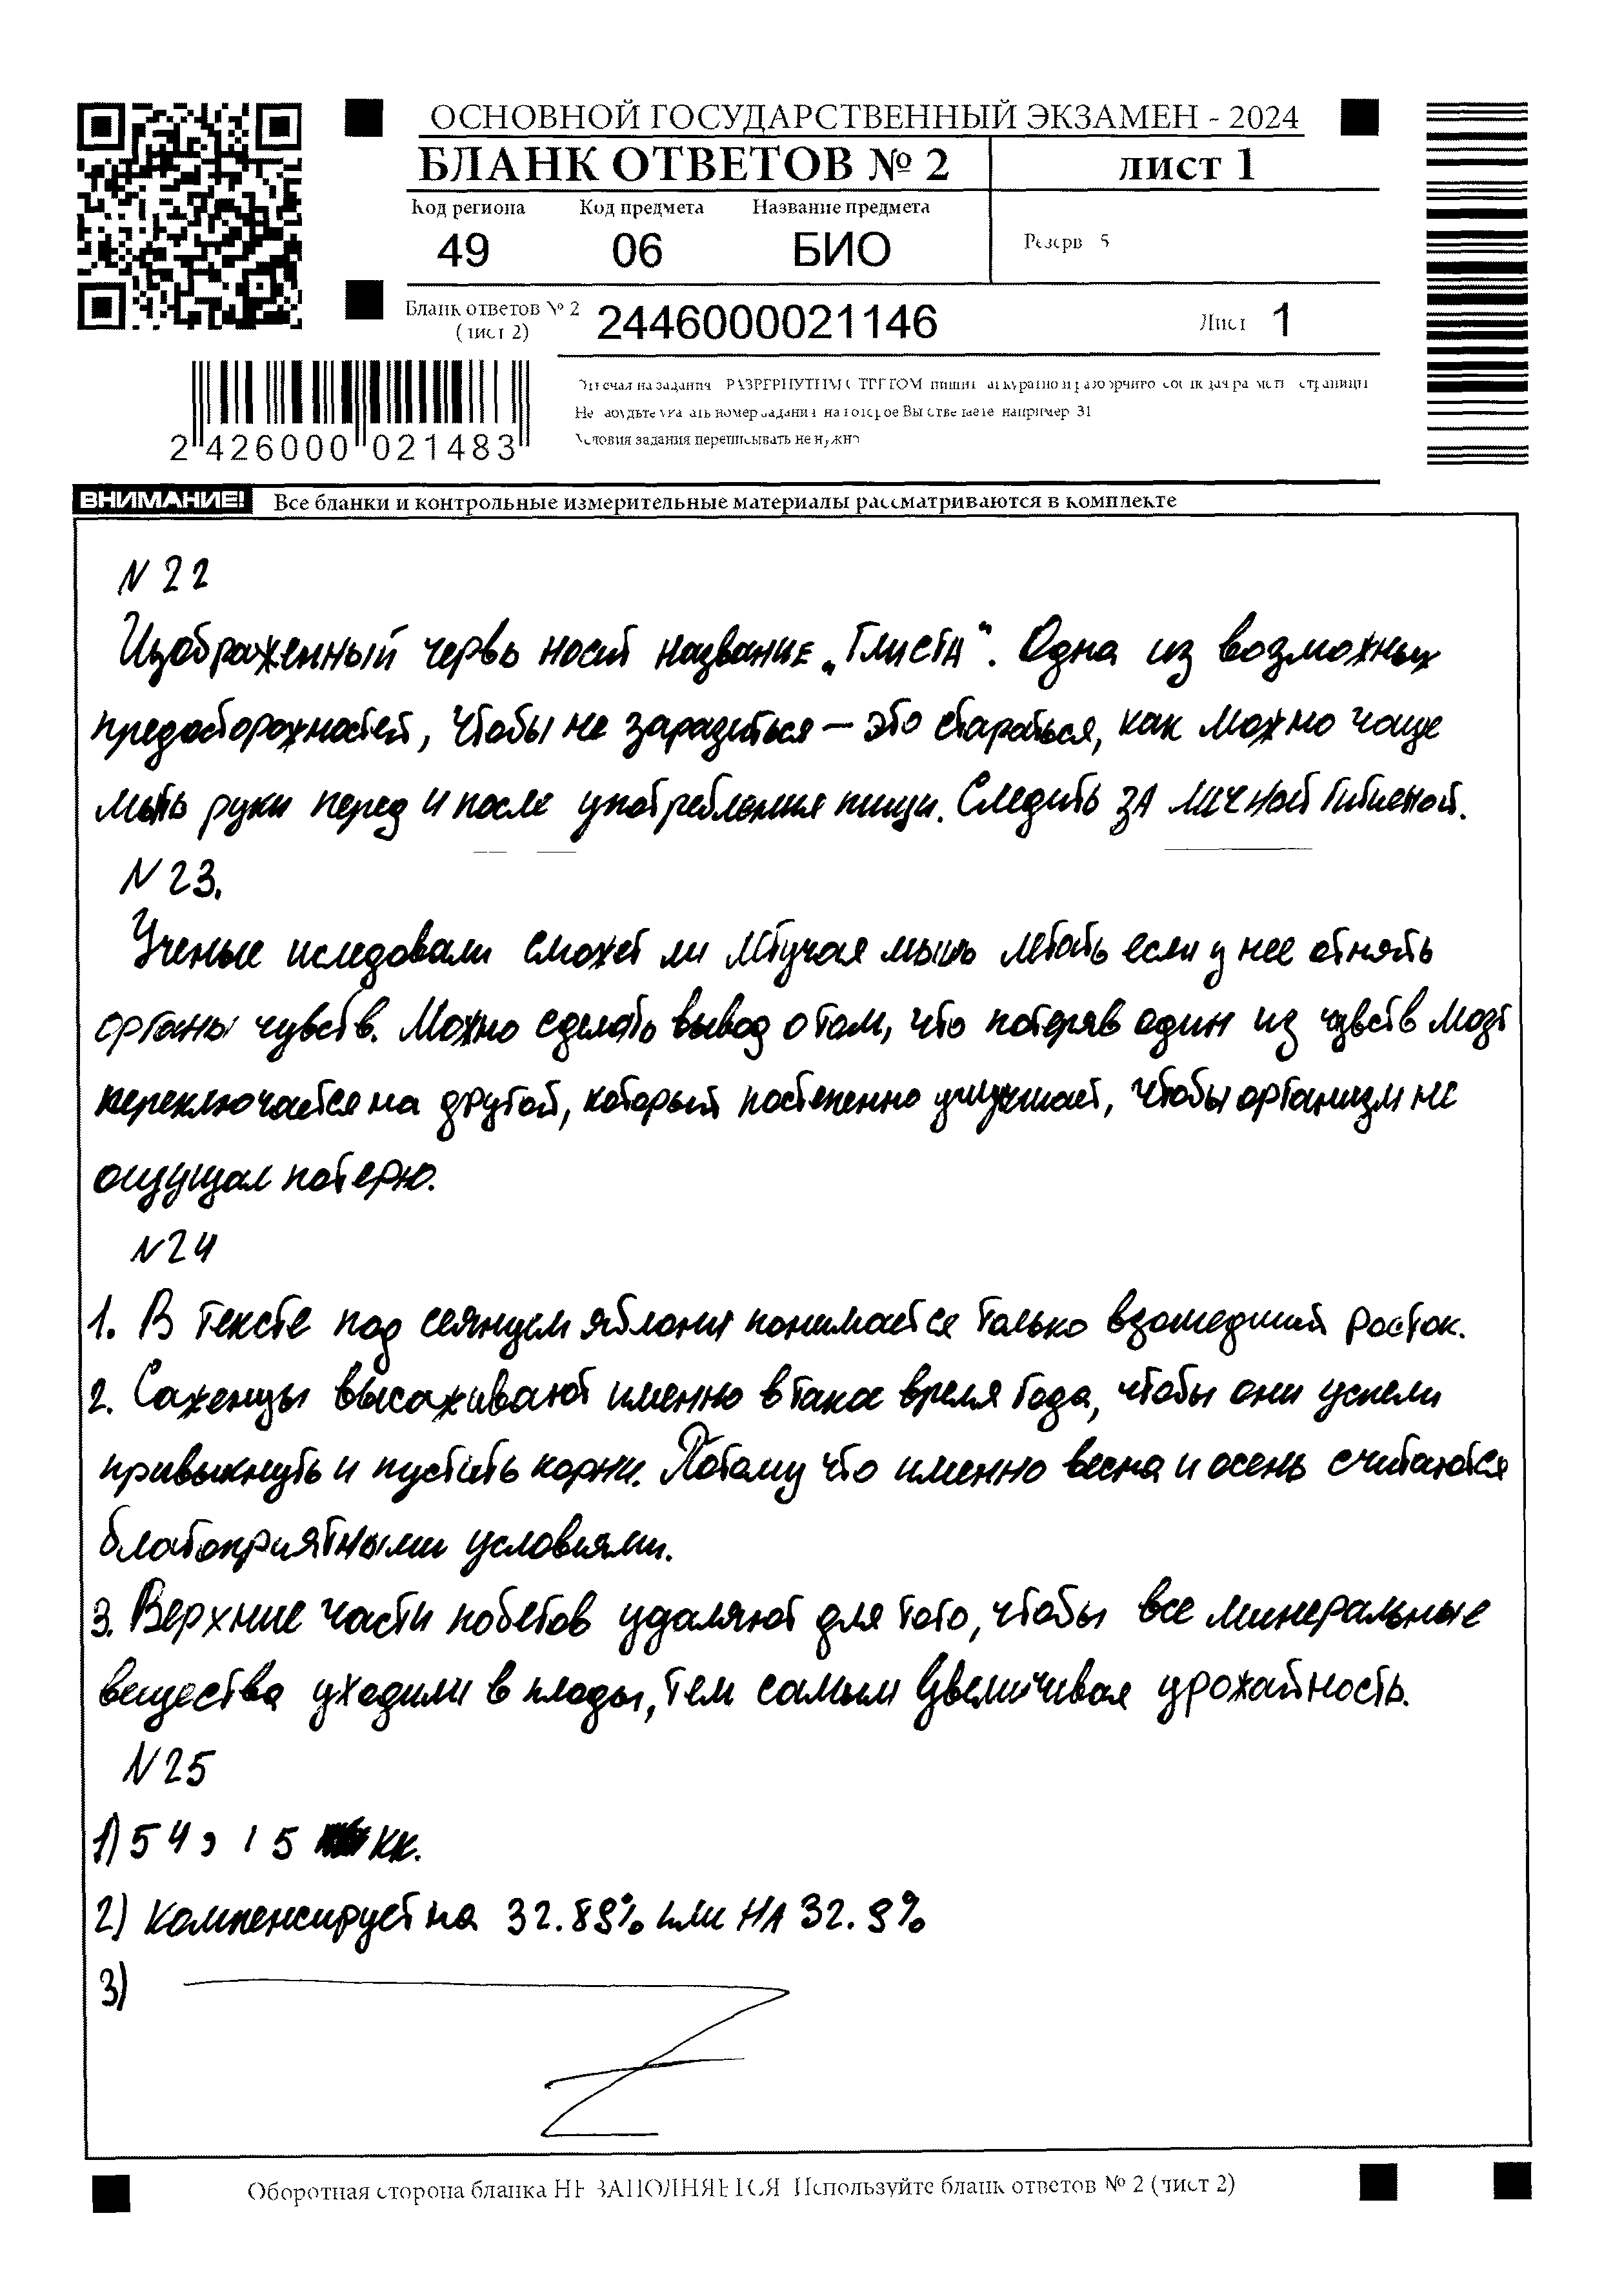 ОСНОВНОЙ ГОСУДАРСТВЕННЫЙ ЭКЗАМЕН - 2024
БЛАНК ОТВЕТОВ № 2
лист 1
Код региона Код предмета Название предмета
49 06 БИО
Резерв 5
Бланк ответов № 2 (лист 2) 2446000021146
Лист 1
2 426000 021483
Условия задания переписывать не нужно
ВНИМАНИЕ! Все бланки и контрольные измерительные материалы рассматриваются в комплекте
N 22
Изображенный червь носит название „Глиста“. Одна из возможных
предосторожностей, чтобы не заразиться — это стараться, как можно чаще
мыть руки перед и после употребления пищи. Следить за личной гигиеной.
N 23.
Ученые иследовали сможет ли летучая мышь летать если у нее отнять
органы чувств. Можно сделать вывод о том, что потеряв один из чувств мозг
переключается на другой, который постепенно улучшает, чтобы организм не
ощущал потерю.
N24
1. В тексте под сеянцем яблони понимается только взошедший росток.
2. Саженцы высаживают именно в такое время года, чтобы они успели
привыкнуть и пустить корни. Потому что именно весна и осень считаются
благоприятными условиями.
3. Верхние части побегов удаляют для того, чтобы все минеральные
вещества уходили в плоды, тем самым увеличивая урожайность.
N25
1) 54, 15 КК.
2) Компенсирует на 32.89% или на 32.9%
3)
Оборотная сторона бланка НЕ ЗАПОЛНЯЕТСЯ Используйте бланк ответов № 2 (лист 2)